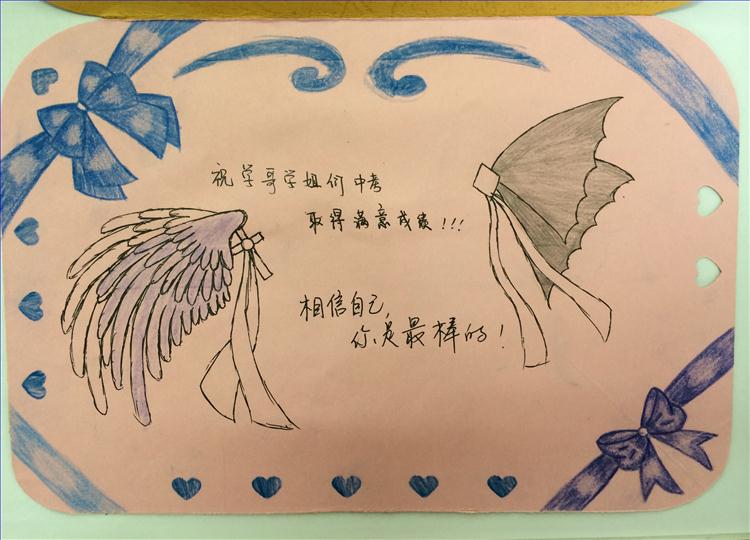 祝学哥学姐们中考
取得满意成绩!!!
相信自己,
你是最棒的!